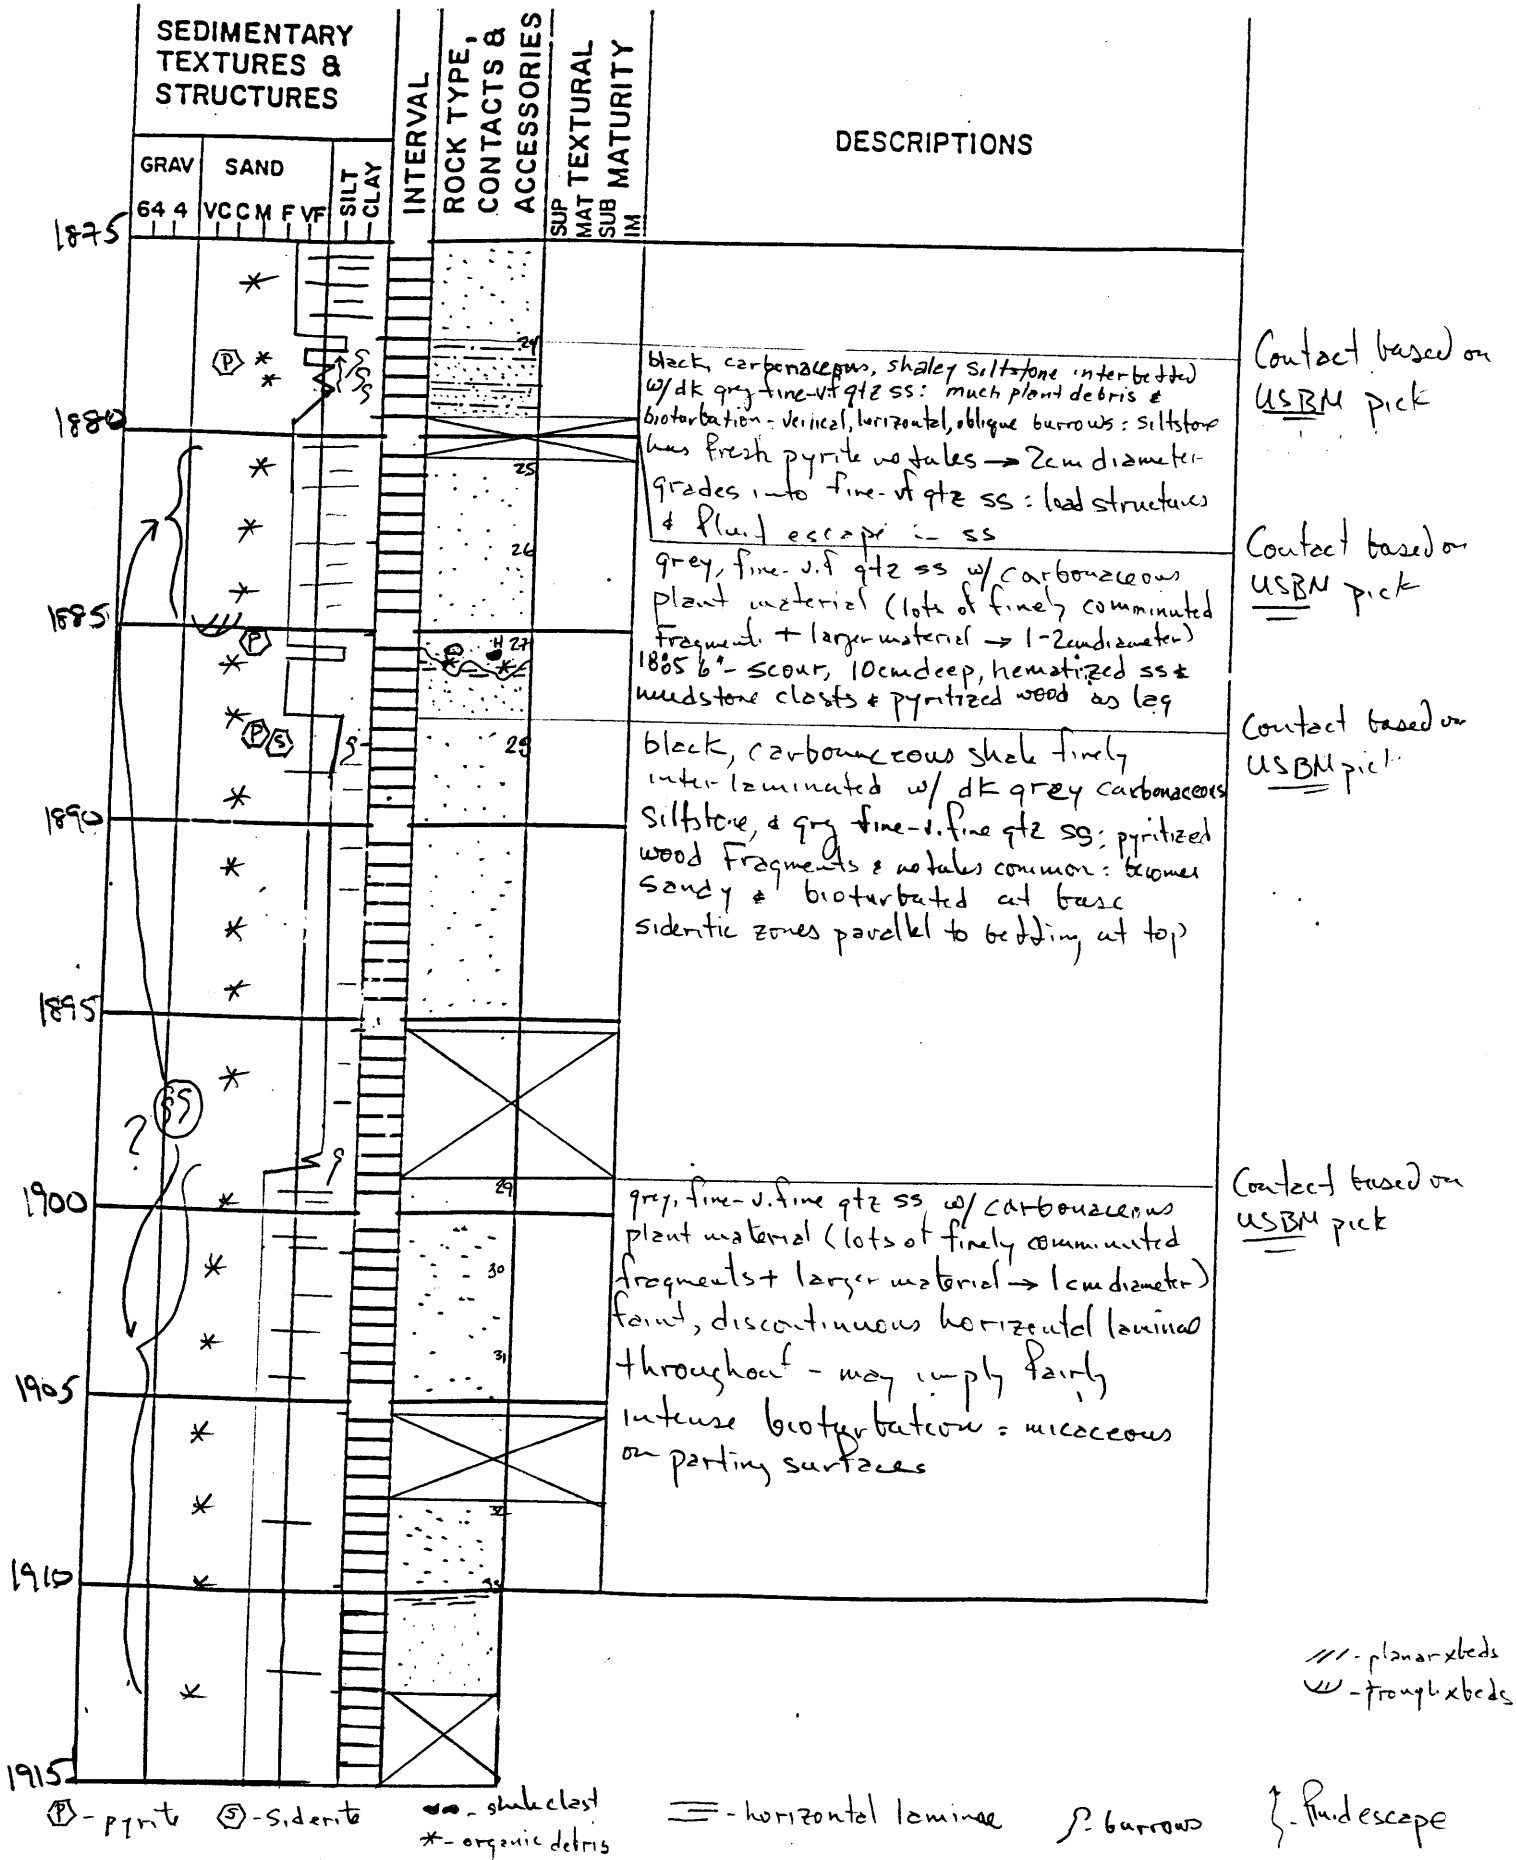 SEDIMENTARY
TEXTURES &
STRUCTURES
INTERVAL
ROCK TYPE,
CONTACTS &
ACCESSORIES
TEXTURAL
MATURITY
DESCRIPTIONS
GRAV
SAND
SILT
CLAY
64 4
VC C M F VF
SUP
MAT
SUB
IM
1875
24
black, carbonaceous, shaley siltstone interbedded
w/ dk grey fine-v.f qtz ss: much plant debris &
bioturbation - vertical, horizontal, oblique burrows: siltstone
has fresh pyrite nodules → 2cm diameter
grades into fine-vf qtz ss: load structures
& fluid escape in ss
Contact based on
USBM pick
P
1880
25
26
grey, fine-v.f qtz ss w/ carbonaceous
plant material (lots of finely comminuted
fragments + larger material → 1-2cm diameter)
1885 6"- scour, 10cm deep, hematized ss &
mudstone clasts & pyritized wood as lag
Contact based on
USBM pick
1885
P
H 27
P S
28
black, carbonaceous shale finely
inter-laminated w/ dk grey carbonaceous
siltstone, & gry fine-v.fine qtz ss: pyritized
wood fragments & nodules common: becomes
sandy & bioturbated at base
sideritic zones parallel to bedding at top
Contact based on
USBM pick
1890
1895
?
29
grey, fine-v.fine qtz ss, w/ carbonaceous
plant material (lots of finely comminuted
fragments + larger material → 1cm diameter)
faint, discontinuous horizontal laminae
throughout - may imply fairly
intense bioturbation = micaceous
on parting surfaces
Contact based on
USBM pick
1900
30
31
1905
32
1910
33
1915
- planar xbeds
- trough xbeds
P - pyrite
S - siderite
- shale clast
* - organic debris
- horizontal laminae
- burrows
- fluid escape